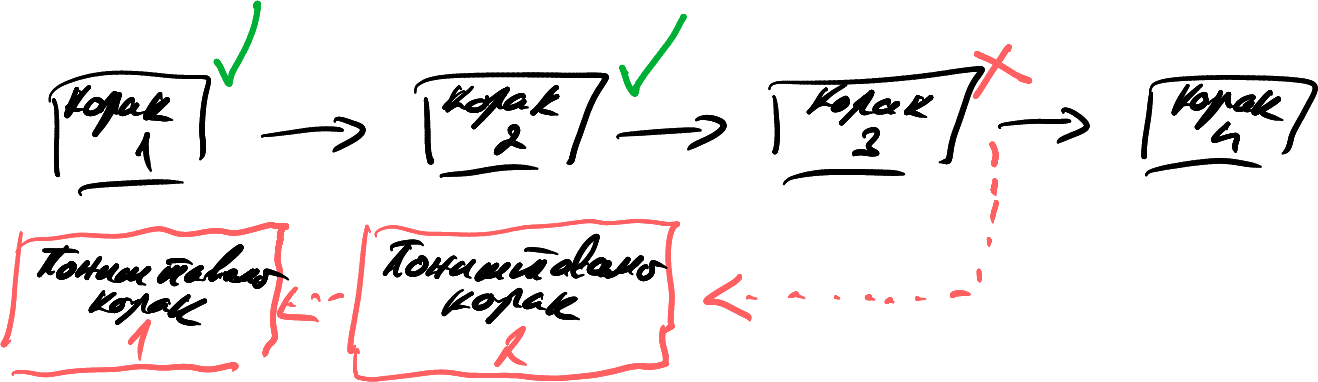 Корак
1
Корак
2
Корак
3
Корак
4
Поништавамо
корак
1
Поништавамо
корак
2